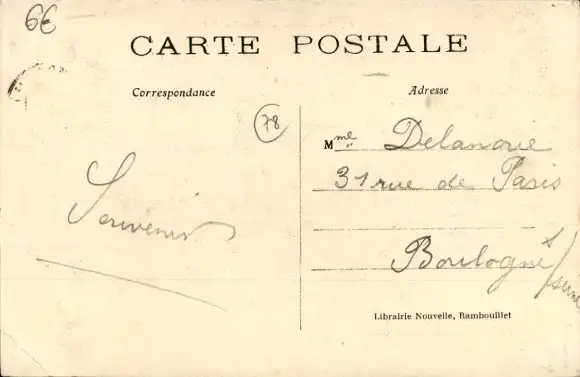 6€
CARTE POSTALE
Correspondance
Adresse
78
Mme Delanoue
31 rue de Paris
Souvenir
Boulogne s/ seine
Librairie Nouvelle, Rambouillet